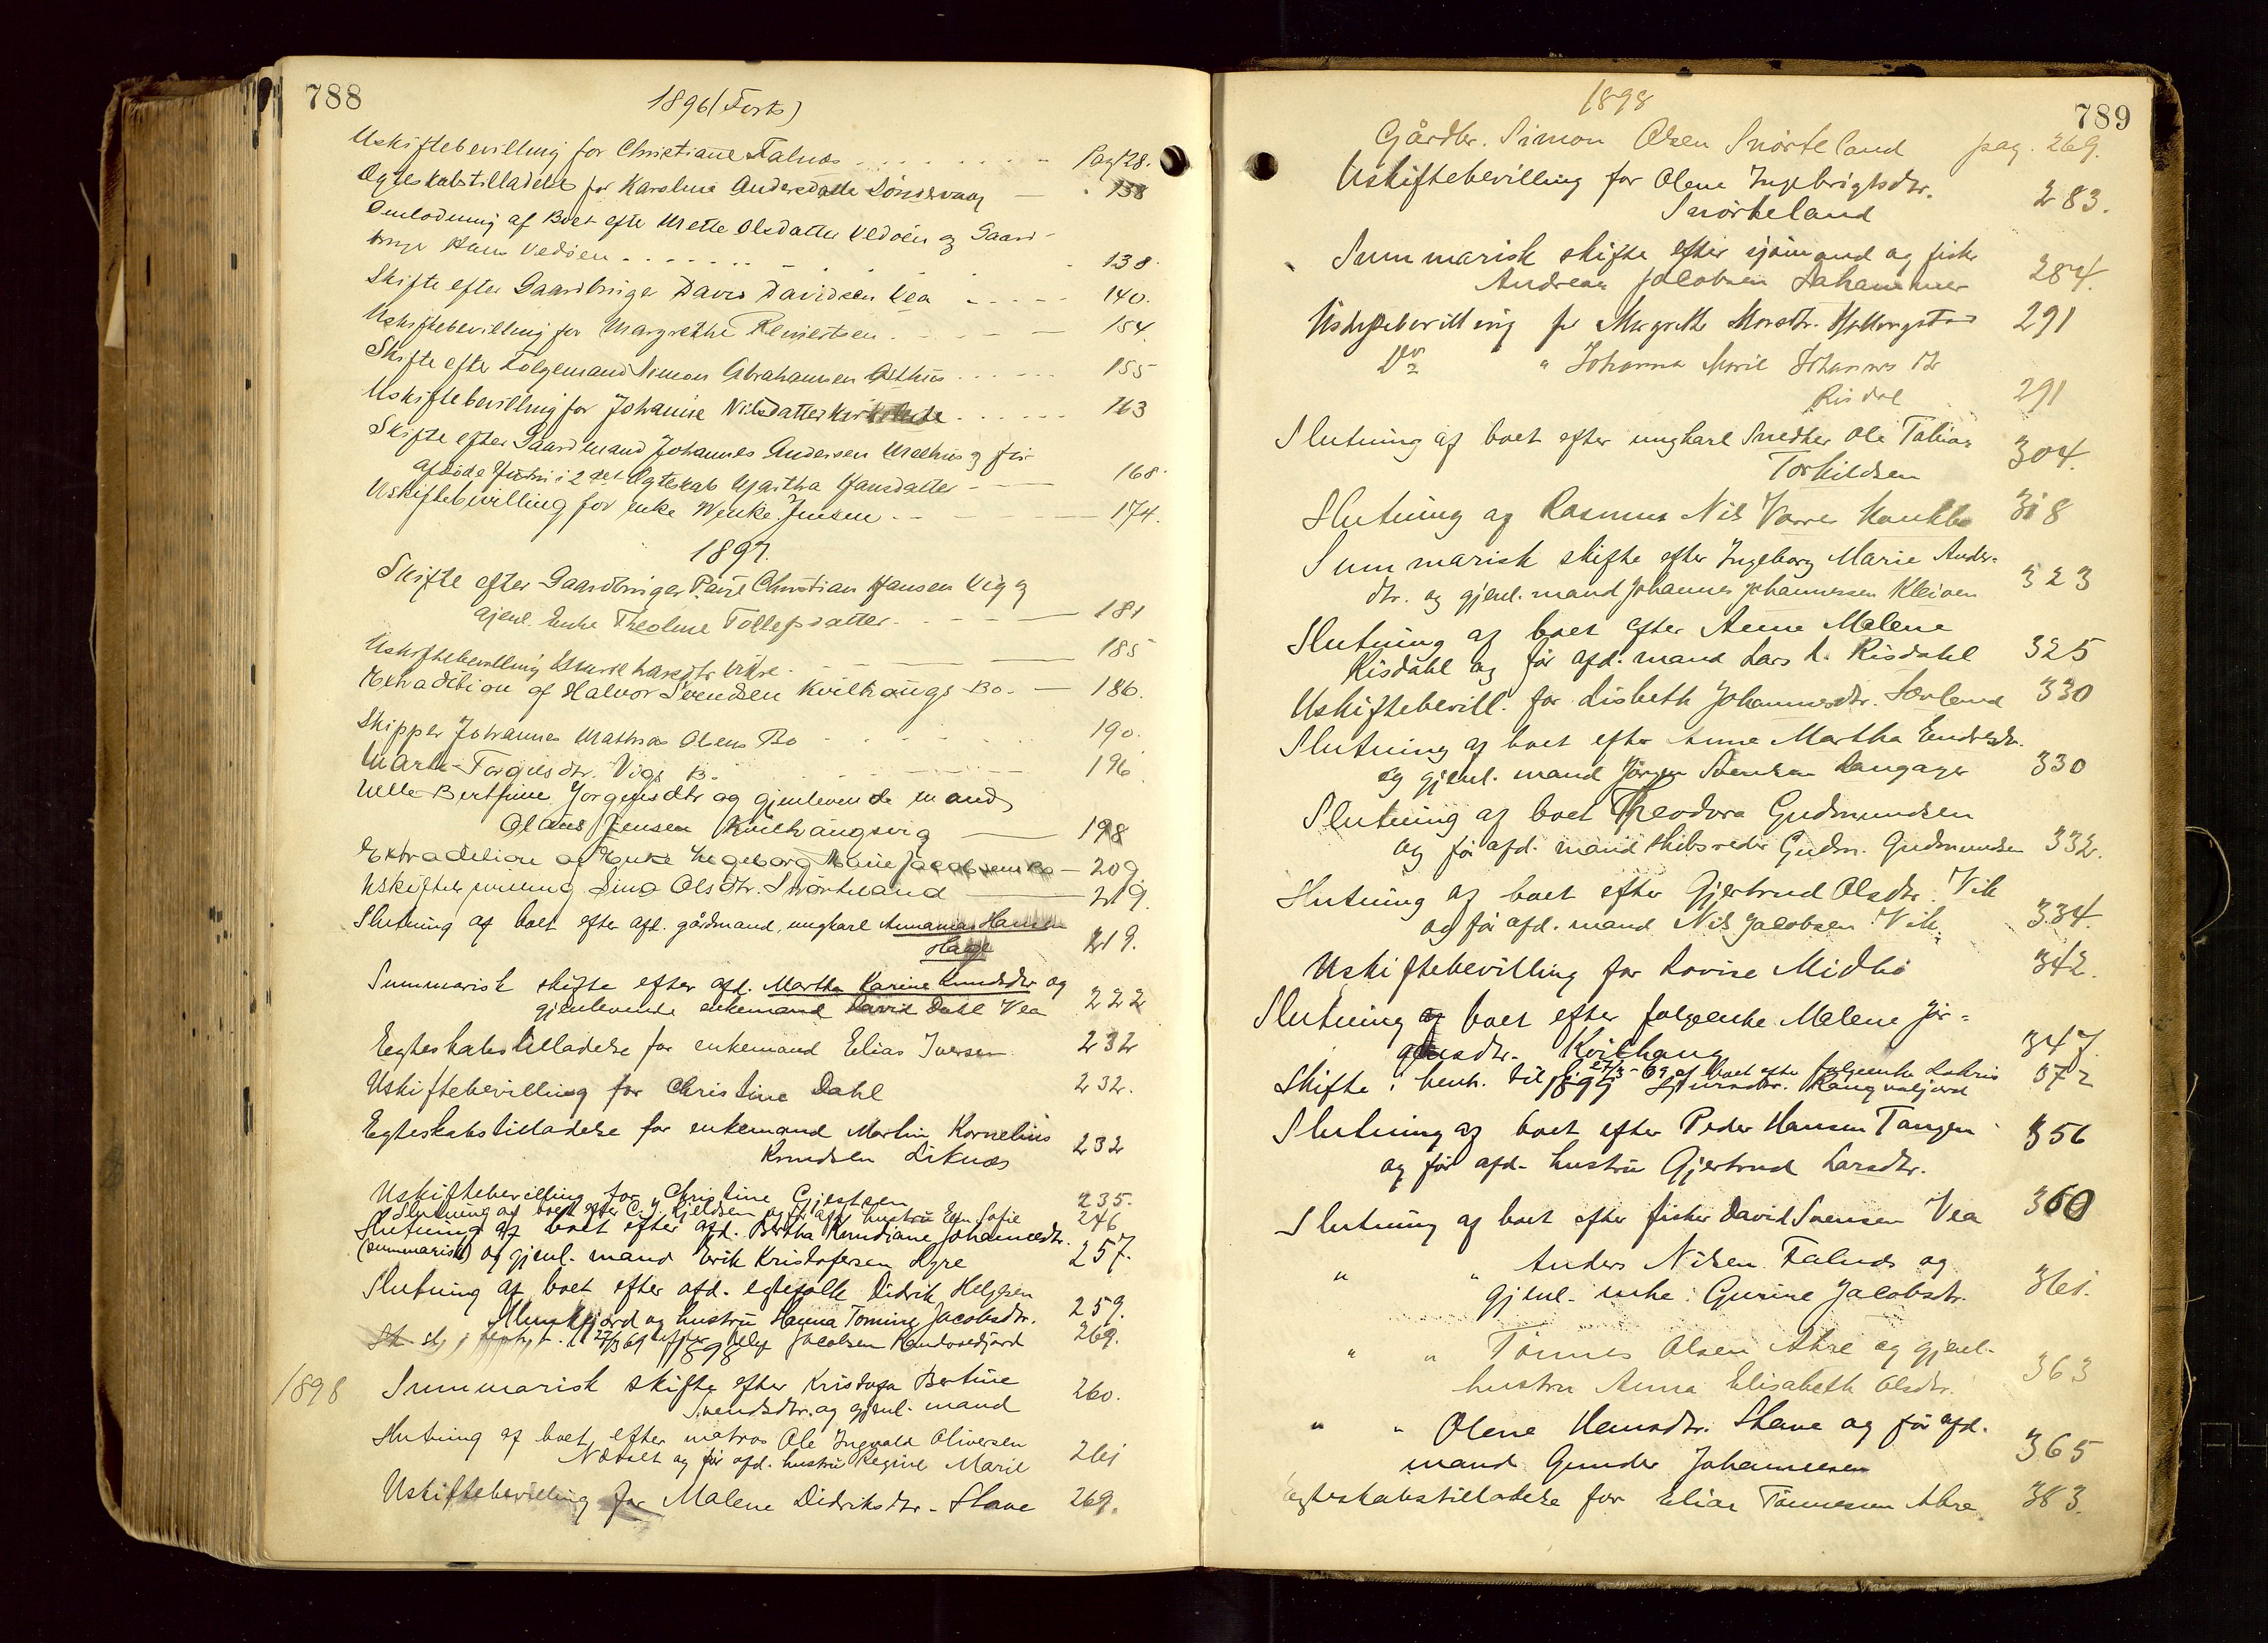 788
1896 (Forts)
Uskiftebevilling for Christiane Falnes - - - Pag 128.
Ægteskabstilladelse for Karoline Andersdatter Søndervaag — " 138
Omlodning af Boet efter Mette Olsdatter Vedøen og Gaard-
bruger Hans Vedøen - - - 138.
Skifte efter Gaardbruger David Davidsen Vea - - - 140.
Uskiftebevilling for Margrethe Reinertsen - - - 154.
Skifte efter Følgemand Simon Abrahamsen - - - 155
Uskiftebevilling for Johanne Nilsdatter - - - 163
Skifte efter Gaardmand Johannes Andersen og før
afdøde Hustru i 2det Ægteskab Martha Hansdatter - - - 168.
Uskiftebevilling for enke Wenke Jensen - - - 174.
1897.
Skifte efter Gaardbruger Paul Christian Hansen Vig og
gjenl. Enke Theoline Tollefsdatter - - - 181
Uskiftebevilling - - - 185
Extradition af Halvor Svendsen Kvilhaugs Bo. — 186.
Skipper Johannes Mathias Olsens Bo - - - 190.
Marthe Torgersdtr. Vigs Bo - - - 196
Bertine Jørgensdtr og gjenlevende mand
Olaus Jensen Kvilhaugsvig — 198
Extradition af Enke Ingeborg Marie Jacobsens Bo — 209.
Uskiftebevilling Sina Olsdtr. Snørteland — 219.
Slutning af boet efter afd. gårdmand, ungkarl Ananias Hansen
Hauge 219.
Summarisk skifte efter afd. Martha Karine Knudsdtr og
gjenlevende enkemand David Dahl Vea 222
Egteskabstilladelse for enkemand Elias Iversen 232
Uskiftebevilling for Christine Dahl 232.
Egteskabstilladelse for enkemand Martin Kornelius
Knudsen Liknæs 232
Uskiftebevilling for Christine Gjestsen 235.
Slutning af boet efter C. J. Kjeldsen og før afd. hustru Sofie 246
Slutning af boet efter afd. Bertha Johannesdtr.
(summarisk) og gjenl. mand Erik Kristofersen Lyre 257.
Slutning af boet efter afd. egtefolk Didrik Helgesen
og hustru Hanna Tomine Jacobsdtr. 259.
27/3 69 efter Jacobsen 269.
1898
1898 Summarisk skifte efter Kristofa Bertine
Svendsdtr. og gjenl. mand 260.
Slutning af boet efter matros Ole Ingvald Oliversen
og før afd. hustru Regine Marie 261
Uskiftebevilling for Malene Didriksdtr. Stave 269.
789
1898
Gårdbr. Simon Olsen Snørteland pag. 269.
Uskiftebevilling for Olene Ingebrigtsdtr.
Snørteland 283.
Summarisk skifte efter sjømand og fisker
Andreas Jacobsen Lahammer 284.
Uskiftebevilling for Margrethe 291
Do " Johanna Marie Johannesdtr
Risdal 291
Slutning af boet efter ungkarl Snedker Ole Tobias
Torkildsen 304.
Slutning af Rasmus Nils 318
Summarisk skifte efter Ingeborg Marie Anders-
dtr. og gjenl. mand Johannes Johannessen Kleiven 323
Slutning af boet efter Anne Malene
Risdahl og før afd. mand Lars L. Risdahl 325
Uskiftebevill. for Lisbeth Johannesdtr. Sørland 330
Slutning af boet efter Anne Martha Endresdtr.
og gjenl. mand Jørgen Svensen Langager 330
Slutning af boet Theodora Gudmundsen
og før afd. mand skibsreder Gudm. Gudmundsen 332.
Slutning af boet efter Gjertrud Olsdtr. Vik
og før afd. mand Nils Jacobsen Vik. 334.
Uskiftebevilling for Lovise Midbø 342.
Slutning af boet efter følgeenke Malene Jør-
gensdtr. Kvilhaug 347.
Skifte i henh. til l. 27/3-69 af boet efter følgeenke 372
1899
Slutning af boet efter Peder Hansen Tangen 356
og før afd. hustru Gjertrud Larsdtr.
Slutning af boet efter fisker David Svensen Vea 360
" " Anders Nilsen Falnæs og
gjenl. enke Gurine Jacobsdtr. 361.
" " Tønnes Olsen Akre og gjenl.
hustru Anna Elisabeth Olsdtr. 363
" " Olene Hansdtr. Stave og før afd.
mand Gunder Johannesen 365
Egteskabstilladelse for Elias Tønnessen Akre. 383.